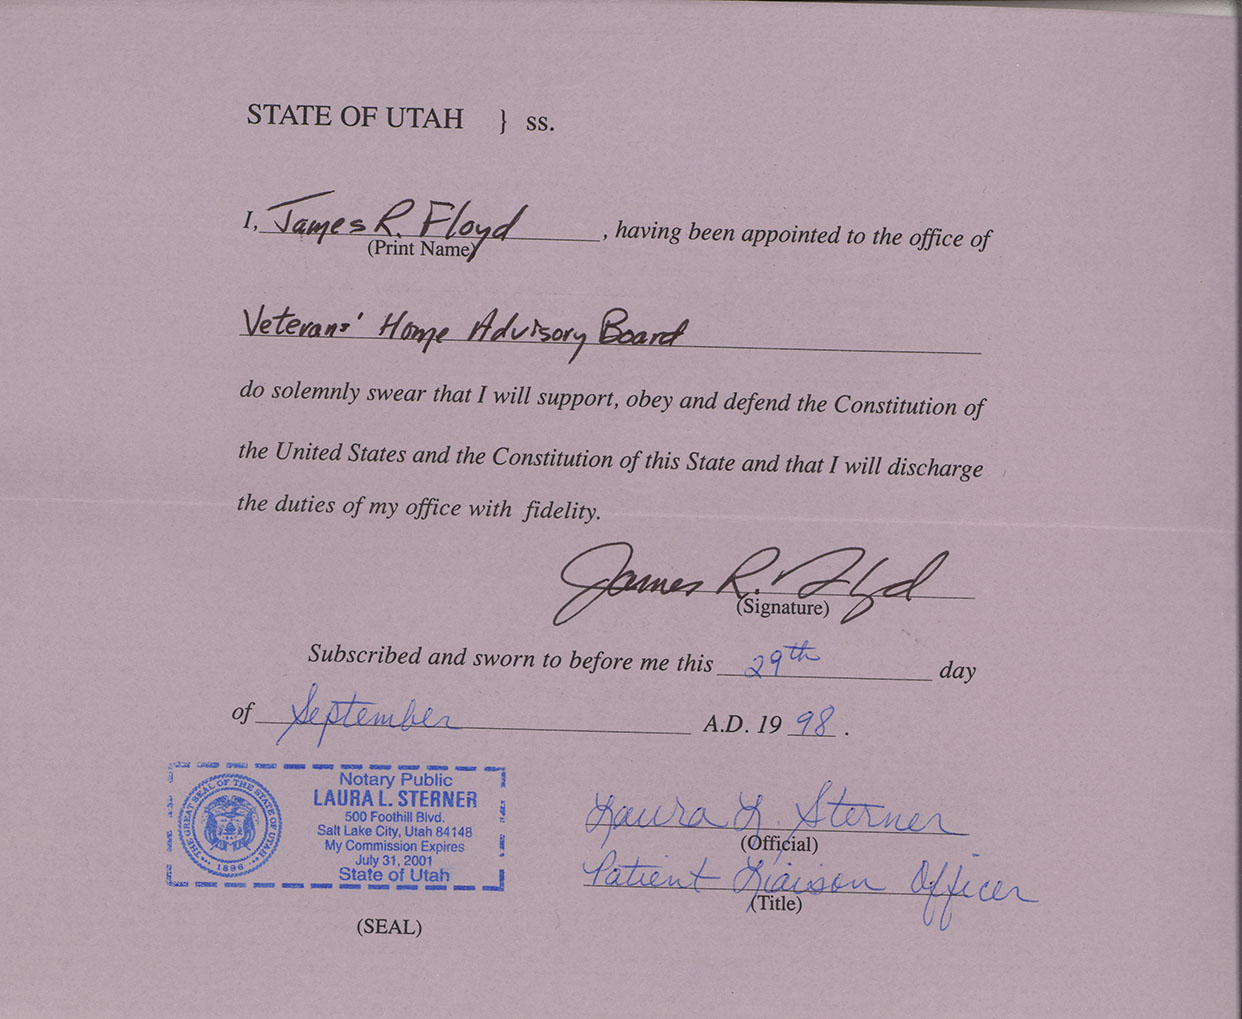 STATE OF UTAH } ss.
I, James R. Floyd, having been appointed to the office of
(Print Name)
Veterans' Home Advisory Board
do solemnly swear that I will support, obey and defend the Constitution of
the United States and the Constitution of this State and that I will discharge
the duties of my office with fidelity.
James R. Floyd
(Signature)
Subscribed and sworn to before me this 29th day
of September A.D. 1998.
THE GREAT SEAL OF THE STATE OF UTAH
1896
Notary Public
LAURA L. STERNER
500 Foothill Blvd.
Salt Lake City, Utah 84148
My Commission Expires
July 31, 2001
State of Utah
(SEAL)
Laura L. Sterner
(Official)
Patient Liaison Officer
(Title)